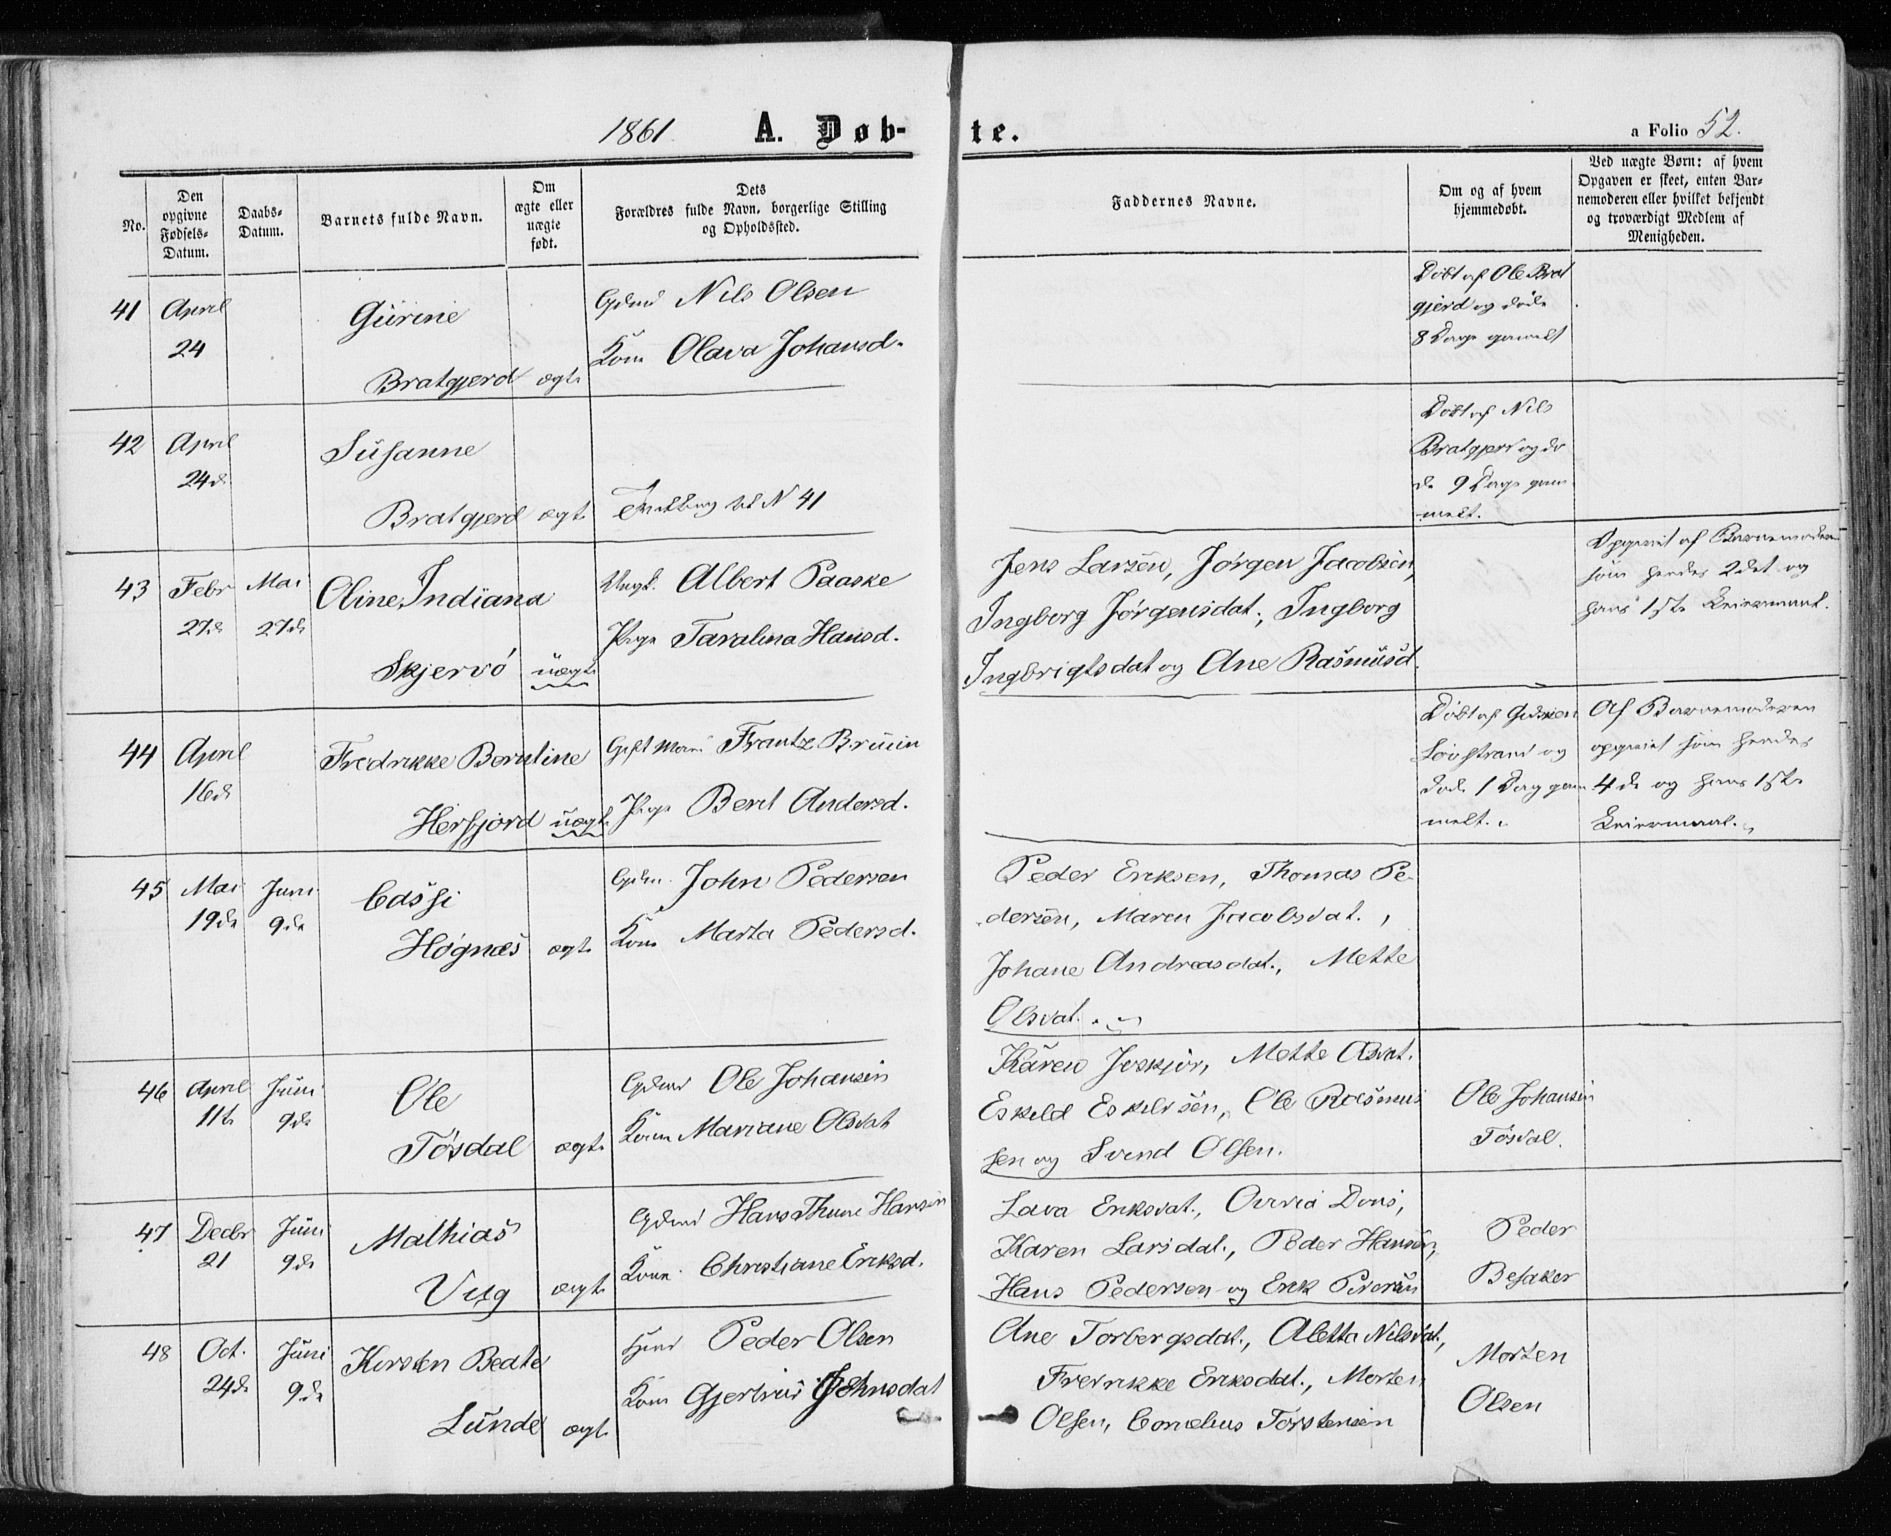 1861. A. Døb- te. a Folio 52.
No.
Den opgivne Fødsels-Datum.
Daabs-Datum.
Barnets fulde Navn.
Om ægte eller uægte født.
Dets Forældres fulde Navn, borgerlige Stilling og Opholdssted.
Faddernes Navne.
Om og af hvem hjemmedøbt.
Ved uægte Børn: af hvem Opgaven er skeet, enten Barnemoderen eller hvilket bekjendt og troværdigt Medlem af Menigheden.
41 April Gürine Gdmd Nils Olsen Døbt af Ole Brat
24 Kone Olava Johansd. gjerd og døde
Bratgjerd ægte 8 Dage gamelt
42 April Süsanne Døbt af Nils
24de Bratgjerd og dø
Bratgjerd ægte Tvilling til N 41 de 9 Dage gam
melt.
43 Febr Mai Oline Indiana Ungk. Albert Paaske Jens Larsen, Jørgen Jacobsen, Opgivet af Barnemoderen
27de 27de Pige Taralena Hansd. Ingborg Jørgensdat., Ingborg som hendes 2det og
Skjervö uægte Ingbrigtsdat og Ane Rasmüsd. hans 1ste Leiermaal.
44 April Fredrikke Berntine Gift Mand Frantz Brüün Døbt af Løvstrand og Af Barnemoderen
16de opgivet som hendes
Herfjord uægte Pige Berit Andersd. døde 1 Dag gam 4de og hans 1ste
melt. Leiermaal.
45 Mai Juni Gdm. John Pedersen Peder Eriksen, Thomas Pe
19de 9de Høgnæs ægte Kone Marta Pedersd. dersen, Maren Jacobsdat.,
Johane Andreasdat., Mette
Olsdat.
46 April Jüni Ole Gdmd Ole Johansen Karen Mette Olsdat.
11te 9de Kone Mariane Olsdat Eskeld Eskildsen, Ole Rasmus Ole Johansen
Tösdal ægte sen og Svend Olsen. Tösdal.
47 Decbr Jüni Mathias Gdmd Hans Thune Hansen Lava Eriksdat., Dons,
21 9de Kone Christiane Eriksd. Karen Larsdat., Peder Hansen, Peder
Vüg ægte Hans Pedersen og Erik Pedersen Besaker
48 Oct. Jüni Kirsten Beate Peder Olsen Ane Torbergsdat., Aletta Nilsdat,
24de 9de Kone Gjertrud Johnsdat Fredrikke Eriksdat., Morten Morten
Lunde ægte Olsen, Cornelius Torstensen Olsen